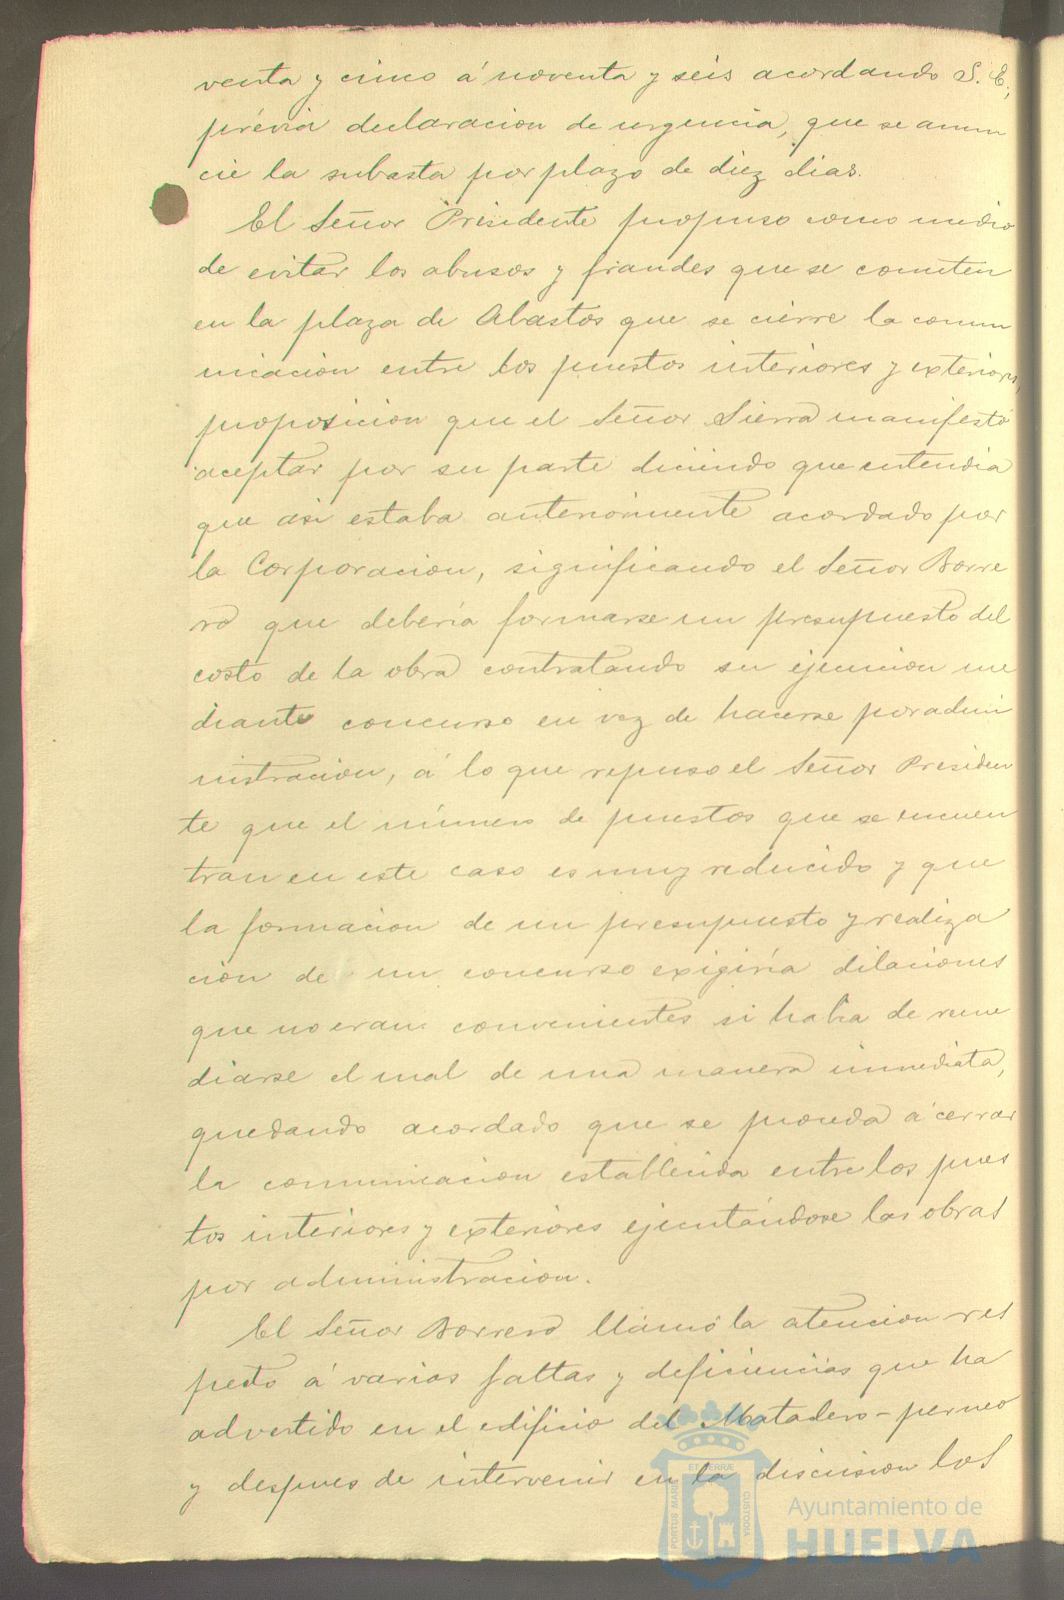 venta y cinco á noventa y seis acordando S. E.,
prévia declaracion de urgencia, que se anun
cie la subasta por plazo de diez dias.
El Señor Presidente propuso como medio
de evitar los abusos y fraudes que se cometen
en la plaza de Abastos que se cierre la comu
nicacion entre los puestos interiores y exteriores,
proposicion que el Señor Sierra manifestó
aceptar por su parte diciendo que entendia
que asi estaba anteriormente acordado por
la Corporacion, significando el Señor Borre
ro que debería formarse un presupuesto del
costo de la obra contratando su ejecucion me
diante concurso en vez de hacerse por admi
nistracion, á lo que repuso el Señor Presiden
te que el número de puestos que se encuen
tran en este caso es muy reducido y que
la formacion de un presupuesto y realiza
cion de un concurso exigiría dilaciones
que no eran convenientes si habia de reme
diarse el mal de una manera inmediata,
quedando acordado que se proceda á cerrar
la comunicacion establecida entre los pues
tos interiores y exteriores ejecutándose las obras
por administracion.
El Señor Borrero llamó la atencion res
pecto á varias faltas y deficiencias que ha
advertido en el edificio del Matadero-perneo
y despues de intervenir en la discusion los
PORTUS MARIS ET TERRÆ CUSTODIA
Ayuntamiento de
HUELVA